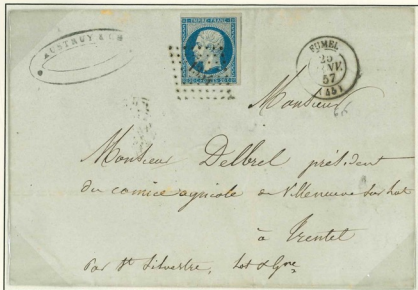 AUSTRUY & CIE
EMPIRE FRANC
FUMEL
25
57
(45)
Monsieur
Monsieur Delbrel président
du comice agricole de Villeneuve sur Lot
à Trentel
par St Silvestre, Lot & Gne